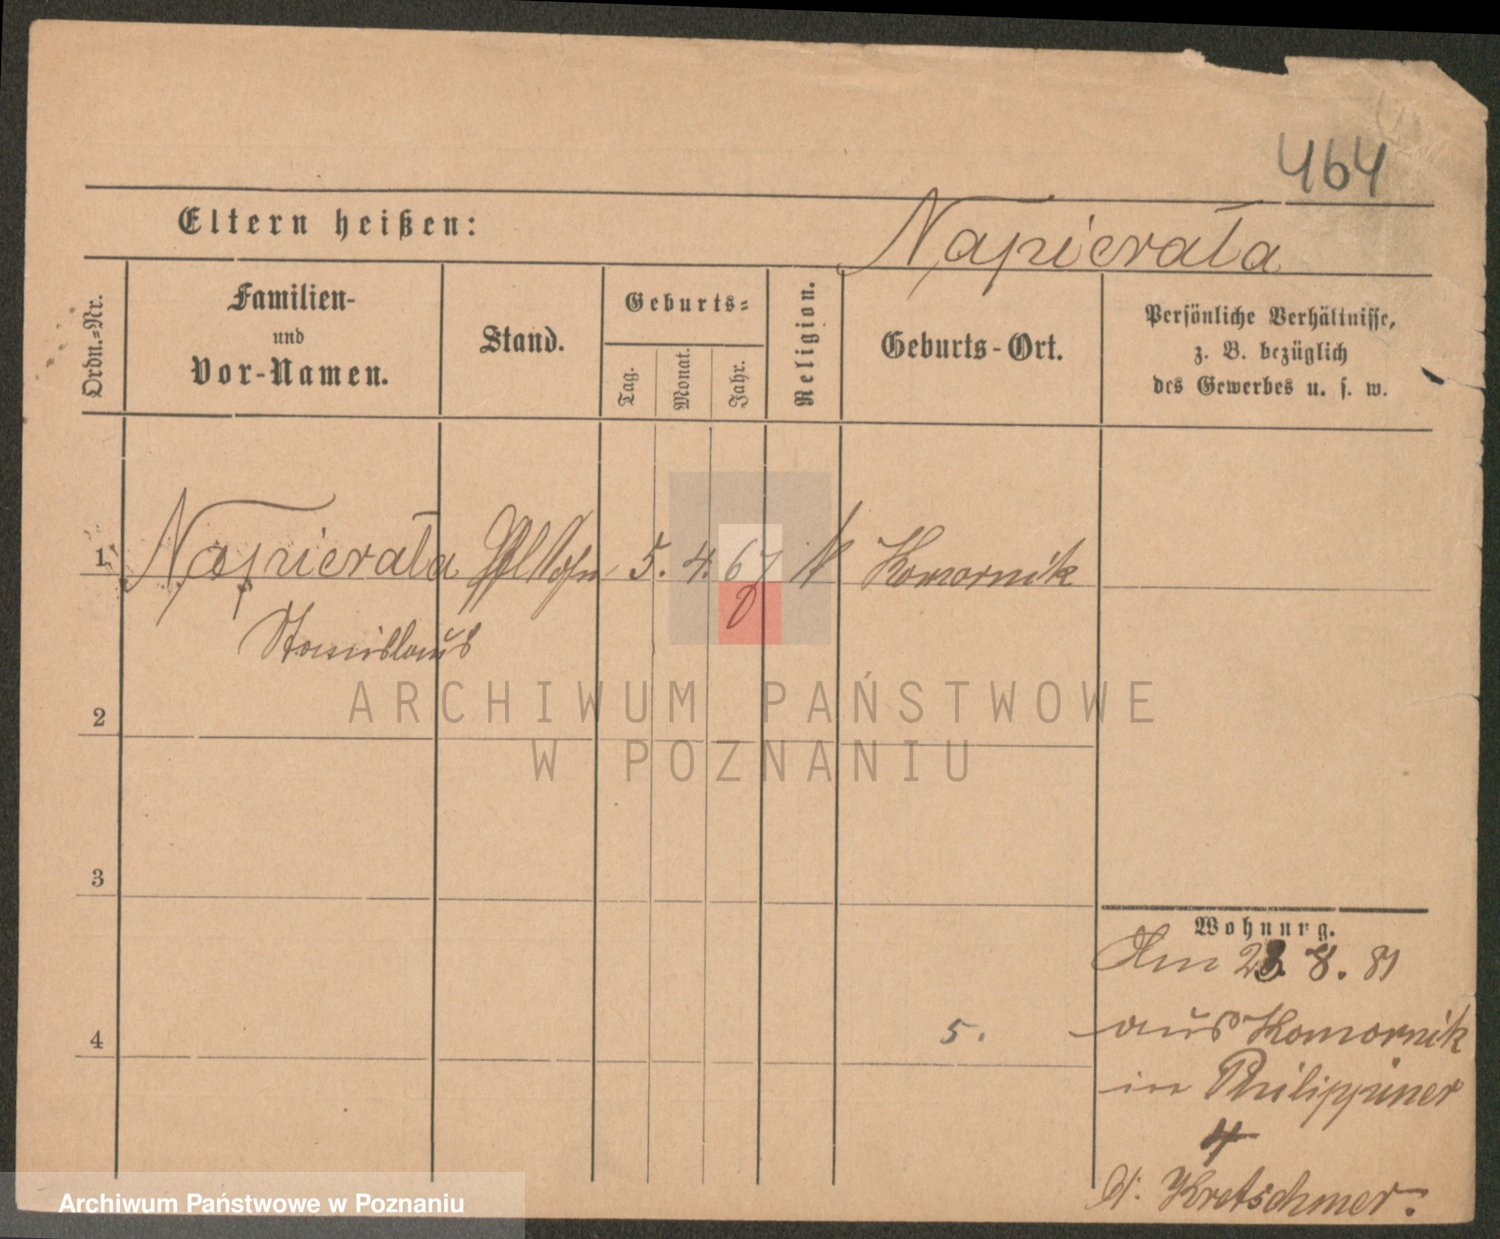 464
Eltern heißen:
Napierała
Ordn.-Nr.
Familien-
und
Vor-Namen.
Stand.
Geburts-
Tag.
Monat.
Jahr.
Religion.
Geburts-Ort.
Persönliche Verhältnisse,
z. B. bezüglich
des Gewerbes u. s. w.
1 Napierała 5. 4. 67 k Komornik
Stanislaus
ARCHIWUM PAŃSTWOWE
W POZNANIU
2
3
4
5.
Wohnung.
Am 23. 8. 81
aus Komornik
in Philippiner
4
Kretschmer.
Archiwum Państwowe w Poznaniu